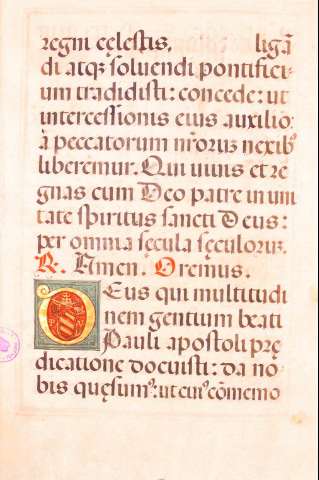 regni cęlestis, ligā
di atq; soluendi pontifici-
um tradidisti: concede: ut
intercessionis eius auxilio:
a peccatorum nr̄orum nexib9
liberemur. Qui uiuis et re
gnas cum Deo patre in uni
tate spiritus sancti Deus:
per omnia sęcula sęculorum.
R. Amen. Oremus.
Deus qui multitudi
nem gentium beati
Pauli apostoli prę
dicatione docuisti: da no
bis quęsum9: ut cui9 cōmemo